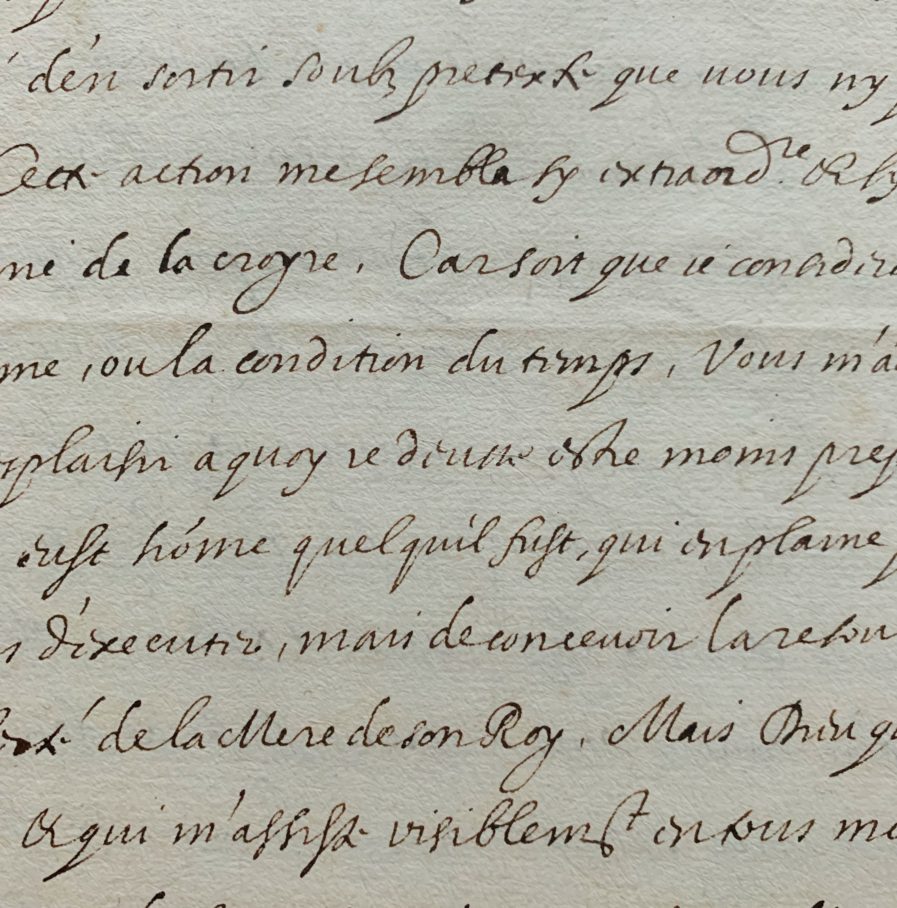 d'en sortir soubz pretexte que vous n'y
Cette action me sembla sy extraord.re & sy
de la croyre. Car soit que ie considere
me, ou la condition du temps, Vous m'a
plaisir a quoy ie deusse estre moins prep
eust hóme quel qu'il fust, qui en plaine
d'executer, mais de concevoir la resou
de la Mere de son Roy. Mais Dieu q
& qui m'assiste visiblemt en tous me